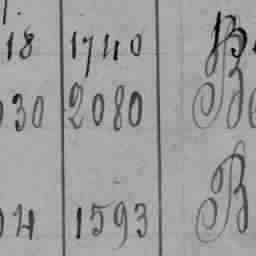 18 1740 B
030 2080 Be
04 1593 B